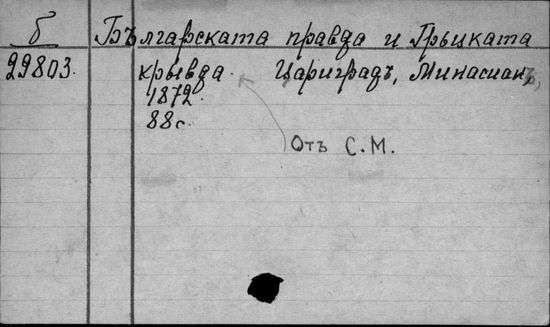 б Българската правда и Гръцката
29803. крывда. Цариградъ, Минасианъ,
1872.
88с.
Отъ С.М.